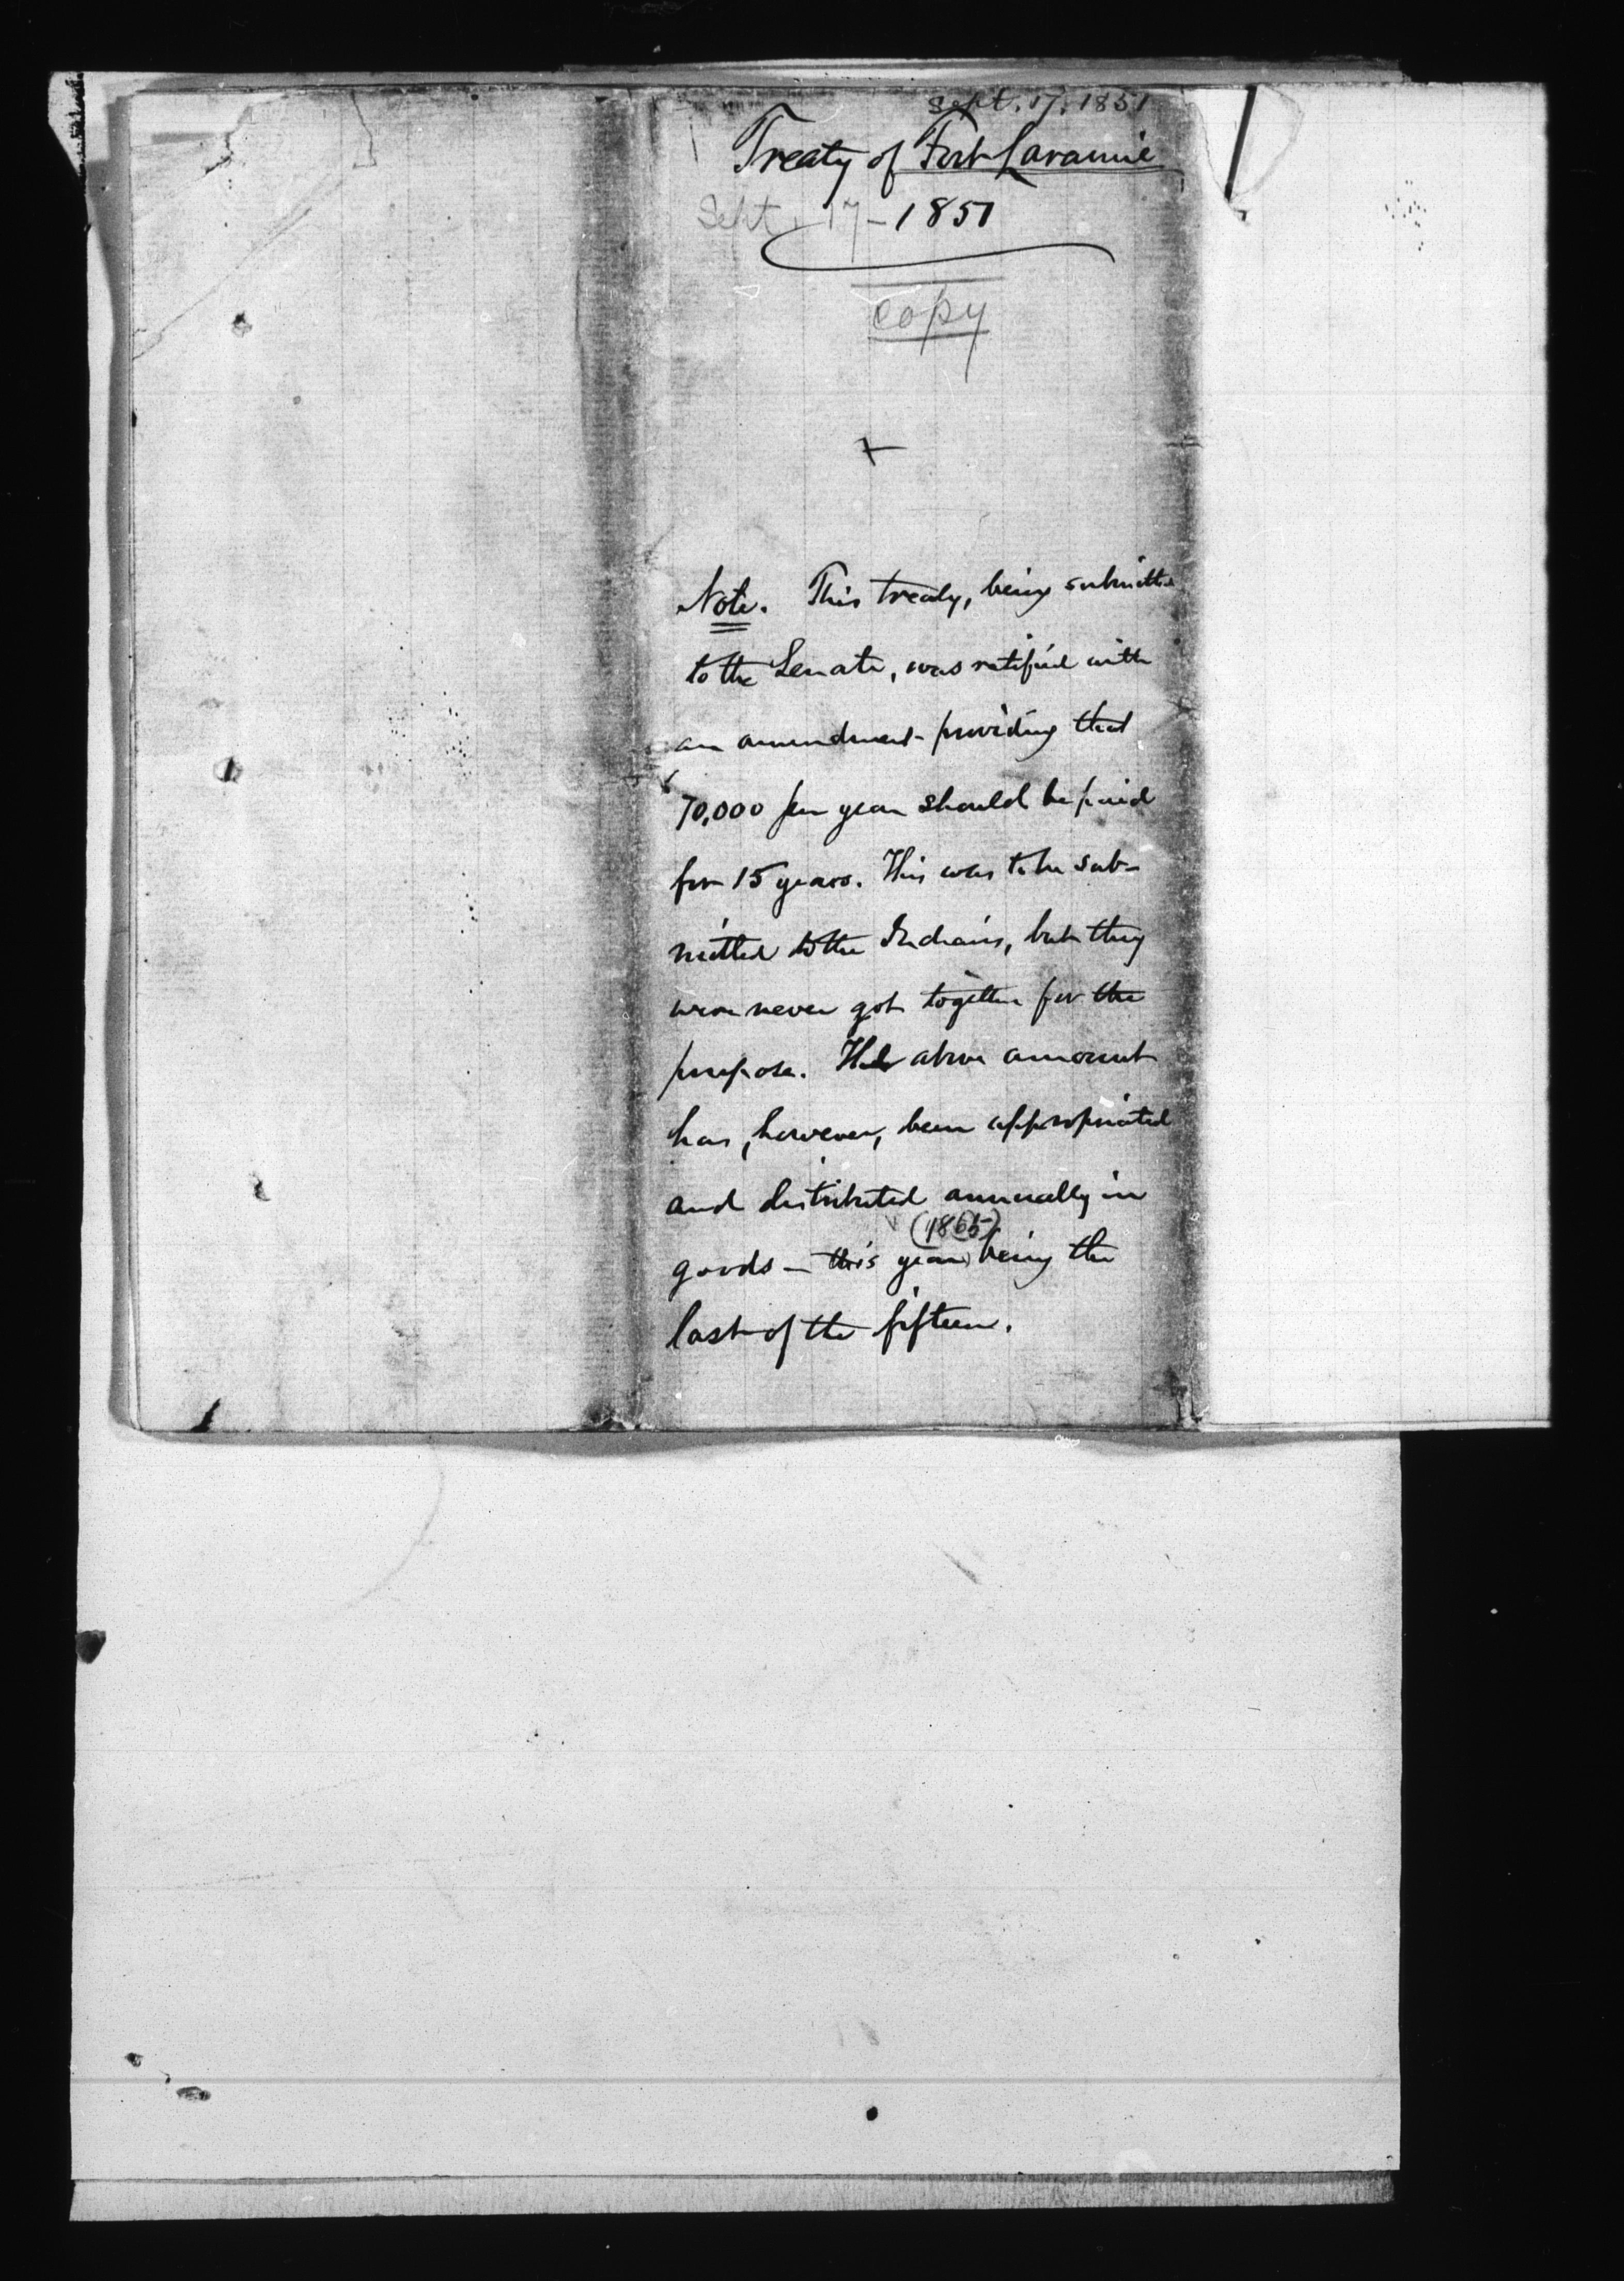 Sept. 17. 1851
Treaty of Fort Laramie
Sept. 17 - 1851
copy
Note. This treaty, being submitted
to the Senate, was ratified with
an amendment providing that
70,000 per year should be paid
for 15 years. This was to be sub-
mitted to the Indians, but they
were never got together for the
purpose. The above amount
has, however, been appropriated
and distributed annually in
(1865)
goods — this year being the
last of the fifteen.